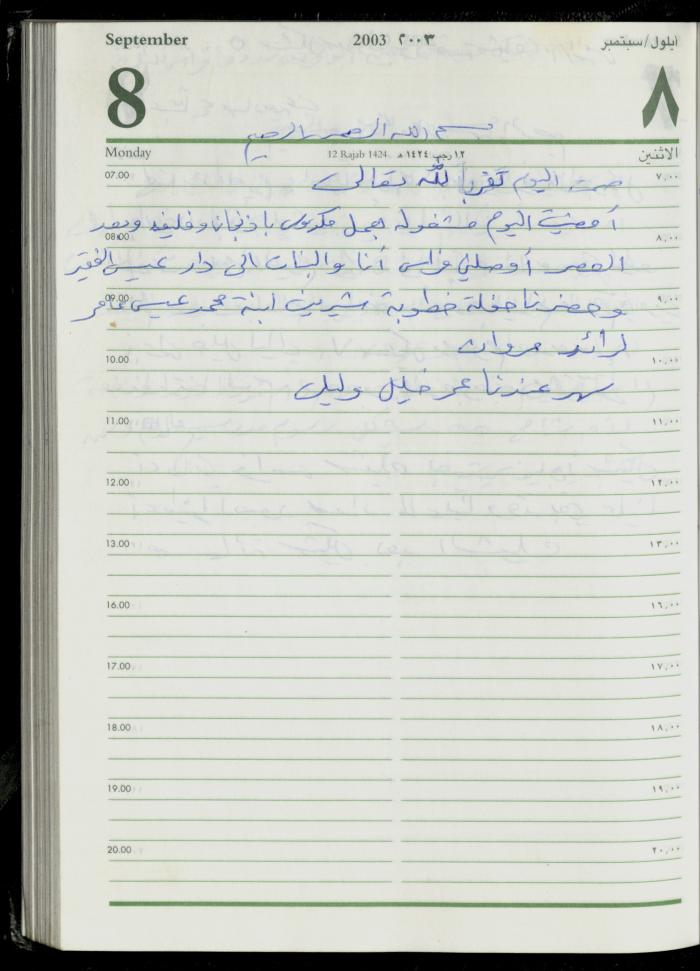 September 2003 ٢٠٠٣ ايلول/سبتمبر
8 ٨
بسم الله الرحمن الرحيم
Monday 12 Rajab 1424 ١٢ رجب ١٤٢٤ هـ الاثنين
07.00 ٧,٠٠
صمت اليوم تقرباً لله تعالى
أمضيت اليوم مشغوله بعمل مكدوس باذنجان وفليفله وبعد
08.00 ٨,٠٠
العصر أوصلني فراس أنا والبنات الى دار عيسى الفقير
09.00 ٩,٠٠
وحضرنا حفلة خطوبة شيرين ابنة محمد عيسى عامر
لرائد مروان
10.00 ١٠,٠٠
سهر عندنا عمر خليل وليلى
11.00 ١١,٠٠
12.00 ١٢,٠٠
13.00 ١٣,٠٠
16.00 ١٦,٠٠
17.00 ١٧,٠٠
18.00 ١٨,٠٠
19.00 ١٩,٠٠
20.00 ٢٠,٠٠